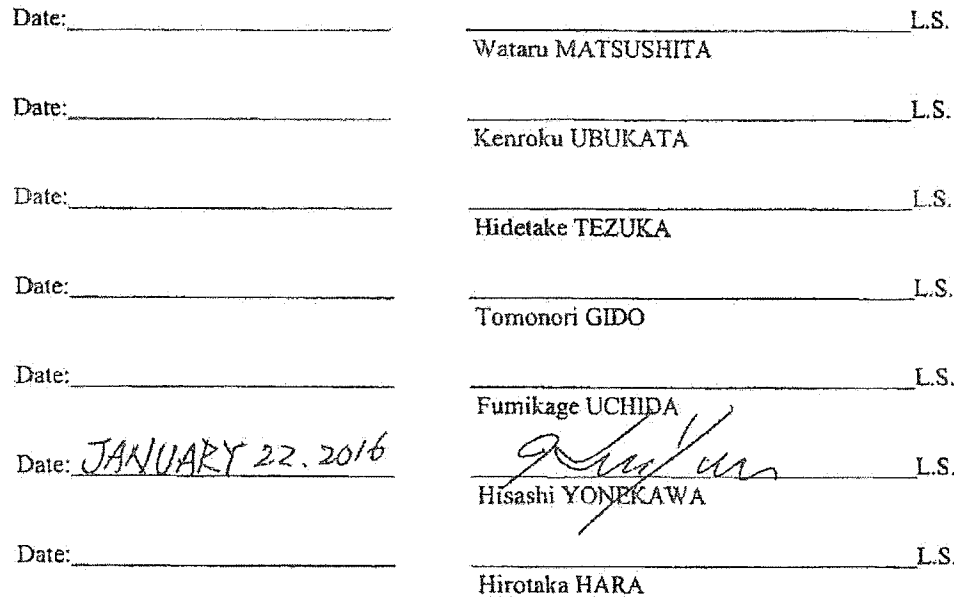 Date: L.S.
Wataru MATSUSHITA
Date: L.S.
Kenroku UBUKATA
Date: L.S.
Hidetake TEZUKA
Date: L.S.
Tomonori GIDO
Date: L.S.
Fumikage UCHIDA
Date: JANUARY 22. 2016 L.S.
Hisashi YONEKAWA
Date: L.S.
Hirotaka HARA